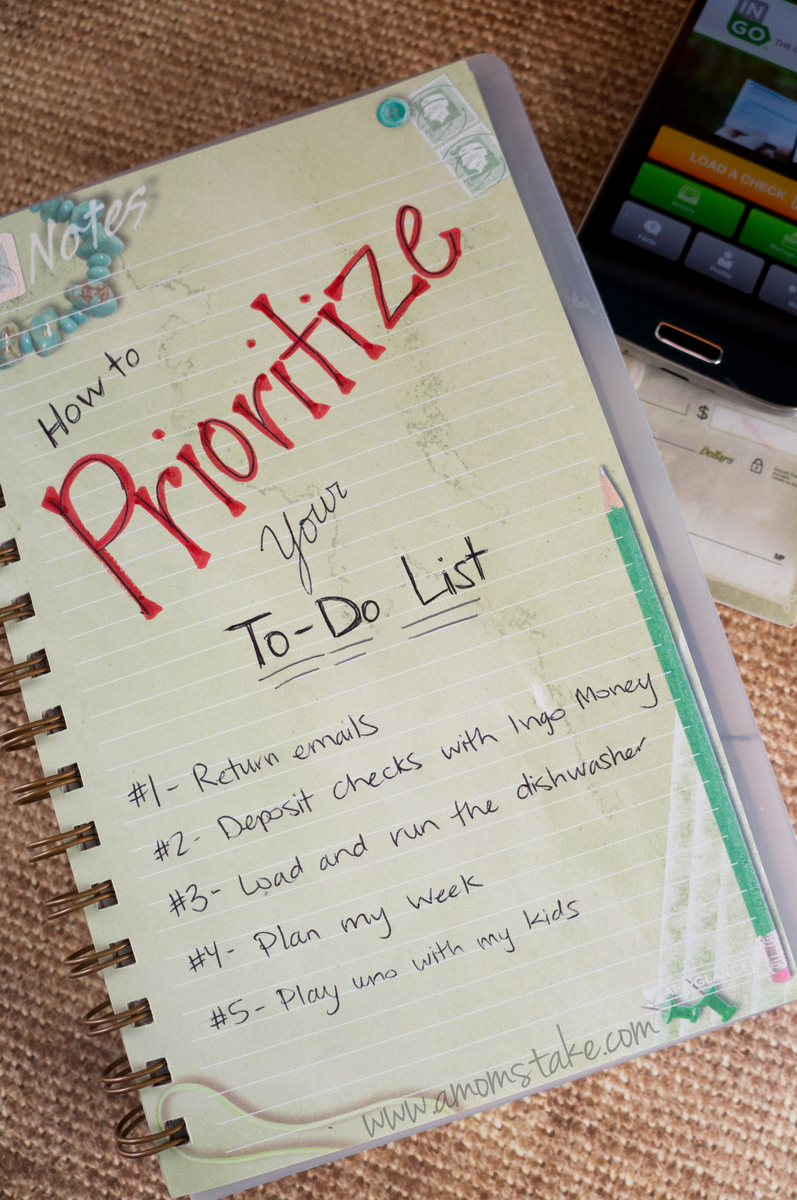 Notes
How to
Prioritize
Your
To-Do List
#1- Return emails
#2- Deposit checks with Ingo Money
#3- Load and run the dishwasher
#4- Plan my week
#5- Play uno with my kids
www.amomstake.com
IN
GO
LOAD A CHECK
History
FAQs
Profile
$
Dollars
MP